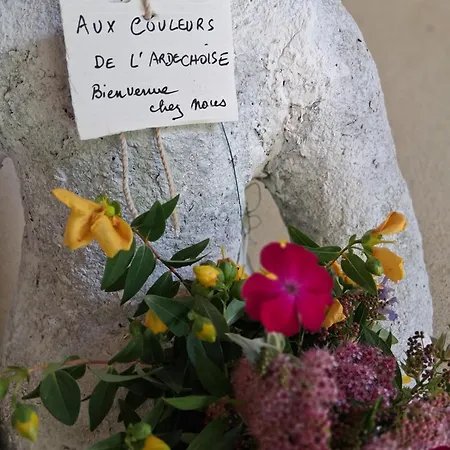 AUX COULEURS
DE L'ARDECHOISE
Bienvenue
chez nous